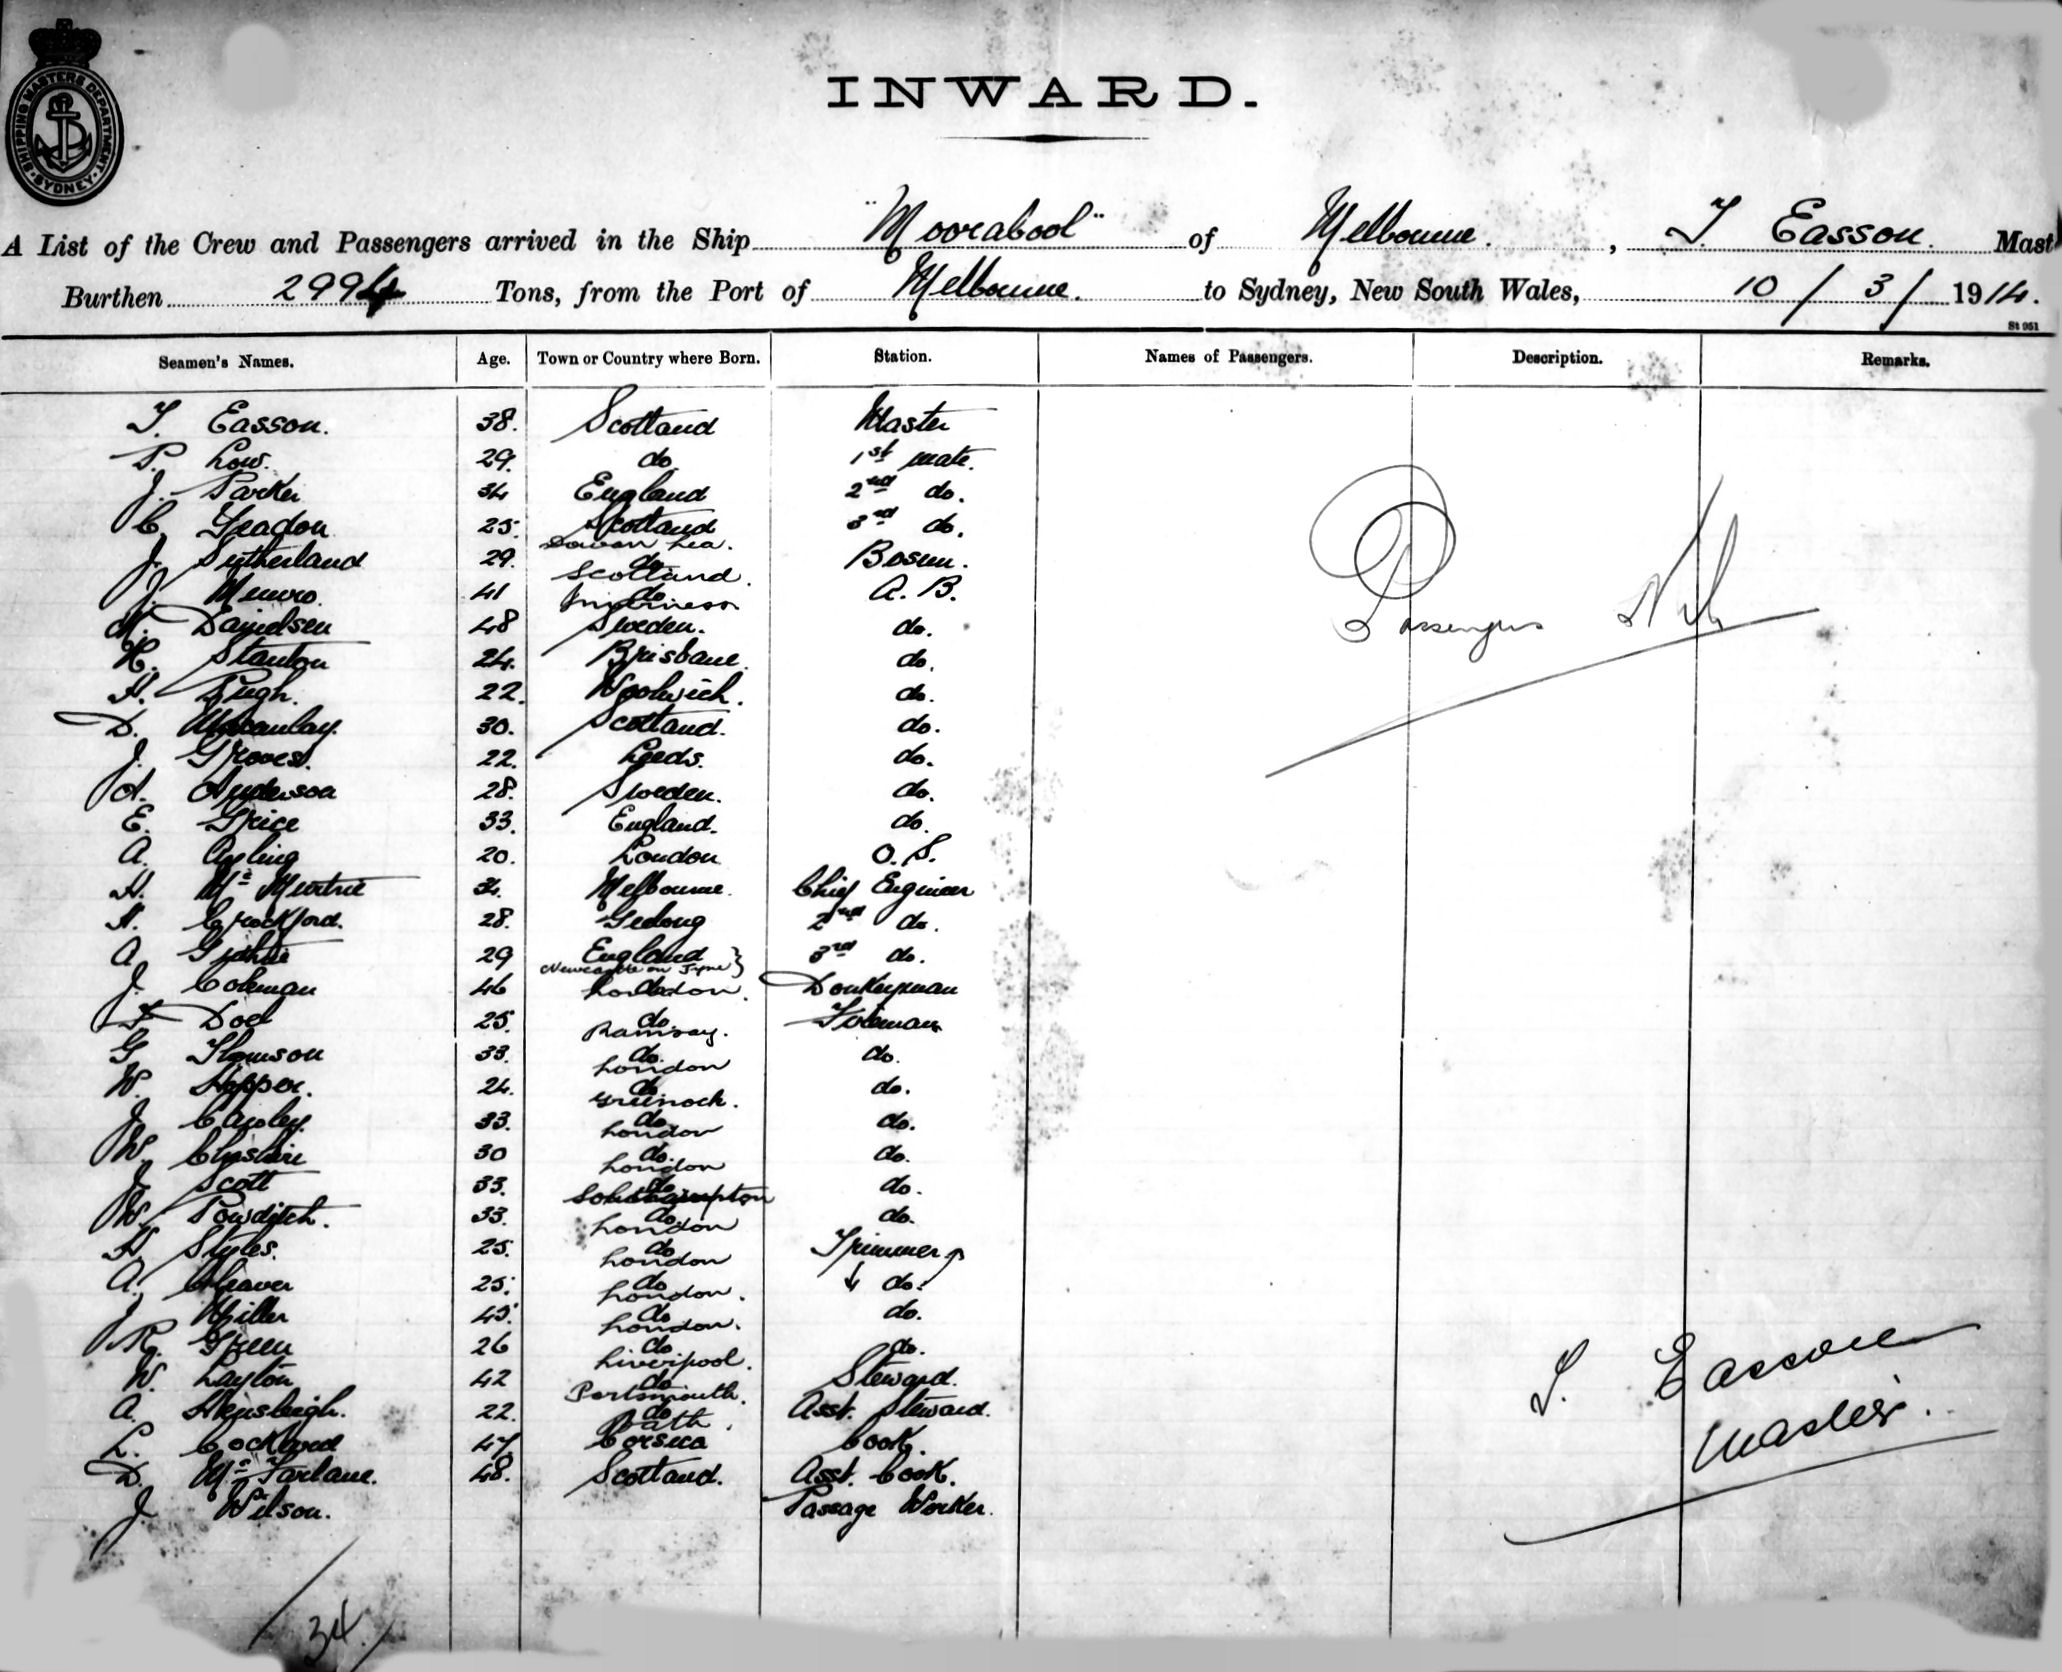 SHIPPING MASTERS DEPARTMENT. SYDNEY.
INWARD.
A List of the Crew and Passengers arrived in the Ship "Moorabool" of Melbourne. , T. Easson. Mast
Burthen 2994 Tons, from the Port of Melbourne. to Sydney, New South Wales, 10 / 3 / 1914.
St 951
Seamen's Names. Age. Town or Country where Born. Station. Names of Passengers. Description. Remarks.
T. Easson. 38. Scotland Master
P. Low. 29. do 1st mate.
J. Parker 34 England 2nd do.
C. Geadon 25. Scotland 3rd do.
J. Sutherland 29. do Bosun.
Scotland.
J. Munro. 41 do A. B.
Inverness
M. Danielsen 48 Sweden. do.
H. Stanton 24. Brisbane. do.
H. Pugh. 22. Woolwich. do.
D. Macaulay. 30. Scotland. do.
J. Groves. 22. Leeds. do.
A. Anderson 28. Sweden. do.
E. Grice 33. England. do.
A. Apling 20. London O. S.
H. Mc Murtrie 34. Melbourne. Chief Engineer
H. Crockford. 28. Geelong 2nd do.
A. Guthrie 29 England } 3rd do.
Newcastle on Tyne
J. Coleman 46 do Donkeyman
London.
Doel 25. do Fireman
Ramsay.
G. Thomson 33. do. do.
London
W. Hopper. 24. do do.
Greenock.
J. Cawley 33. do. do.
London
W. Cheshire 30 do. do.
London
J. Scott 33. do do.
Southampton
W. Powditch. 33. do. do.
London
H. Styles. 25. do Trimmer
London
A. Cleaver 25. do do.
London.
J. Miller 45. do do.
London.
R. Green 26 do do.
Liverpool.
W. Layton 42 do Steward.
Portsmouth.
A. Hensleigh. 22. do Asst. Steward.
Bath.
L. 47. Corsica Cook.
D. Mc Farlane. 48. Scotland. Asst. Cook.
J. Wilson. Passage Worker.
Passengers Nil
T. Easson
Master.
34.